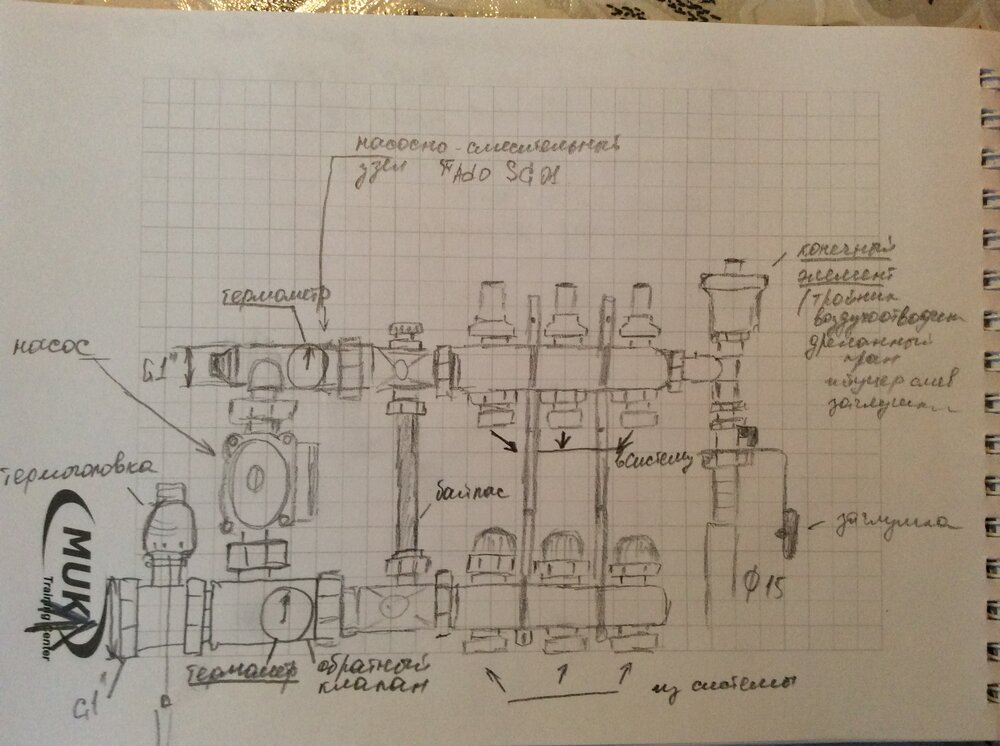 насосно-смесительный
узел Tado SG01
конечный
элемент
(тройник
воздухоотводчик
дренажный
кран
штуцер слив
заглушка
термометр
насос
G1"
в систему
термоголовка
байпас
заглушка
MUK
Training Center
Ф15
термометр
обратный
клапан
G1"
из системы